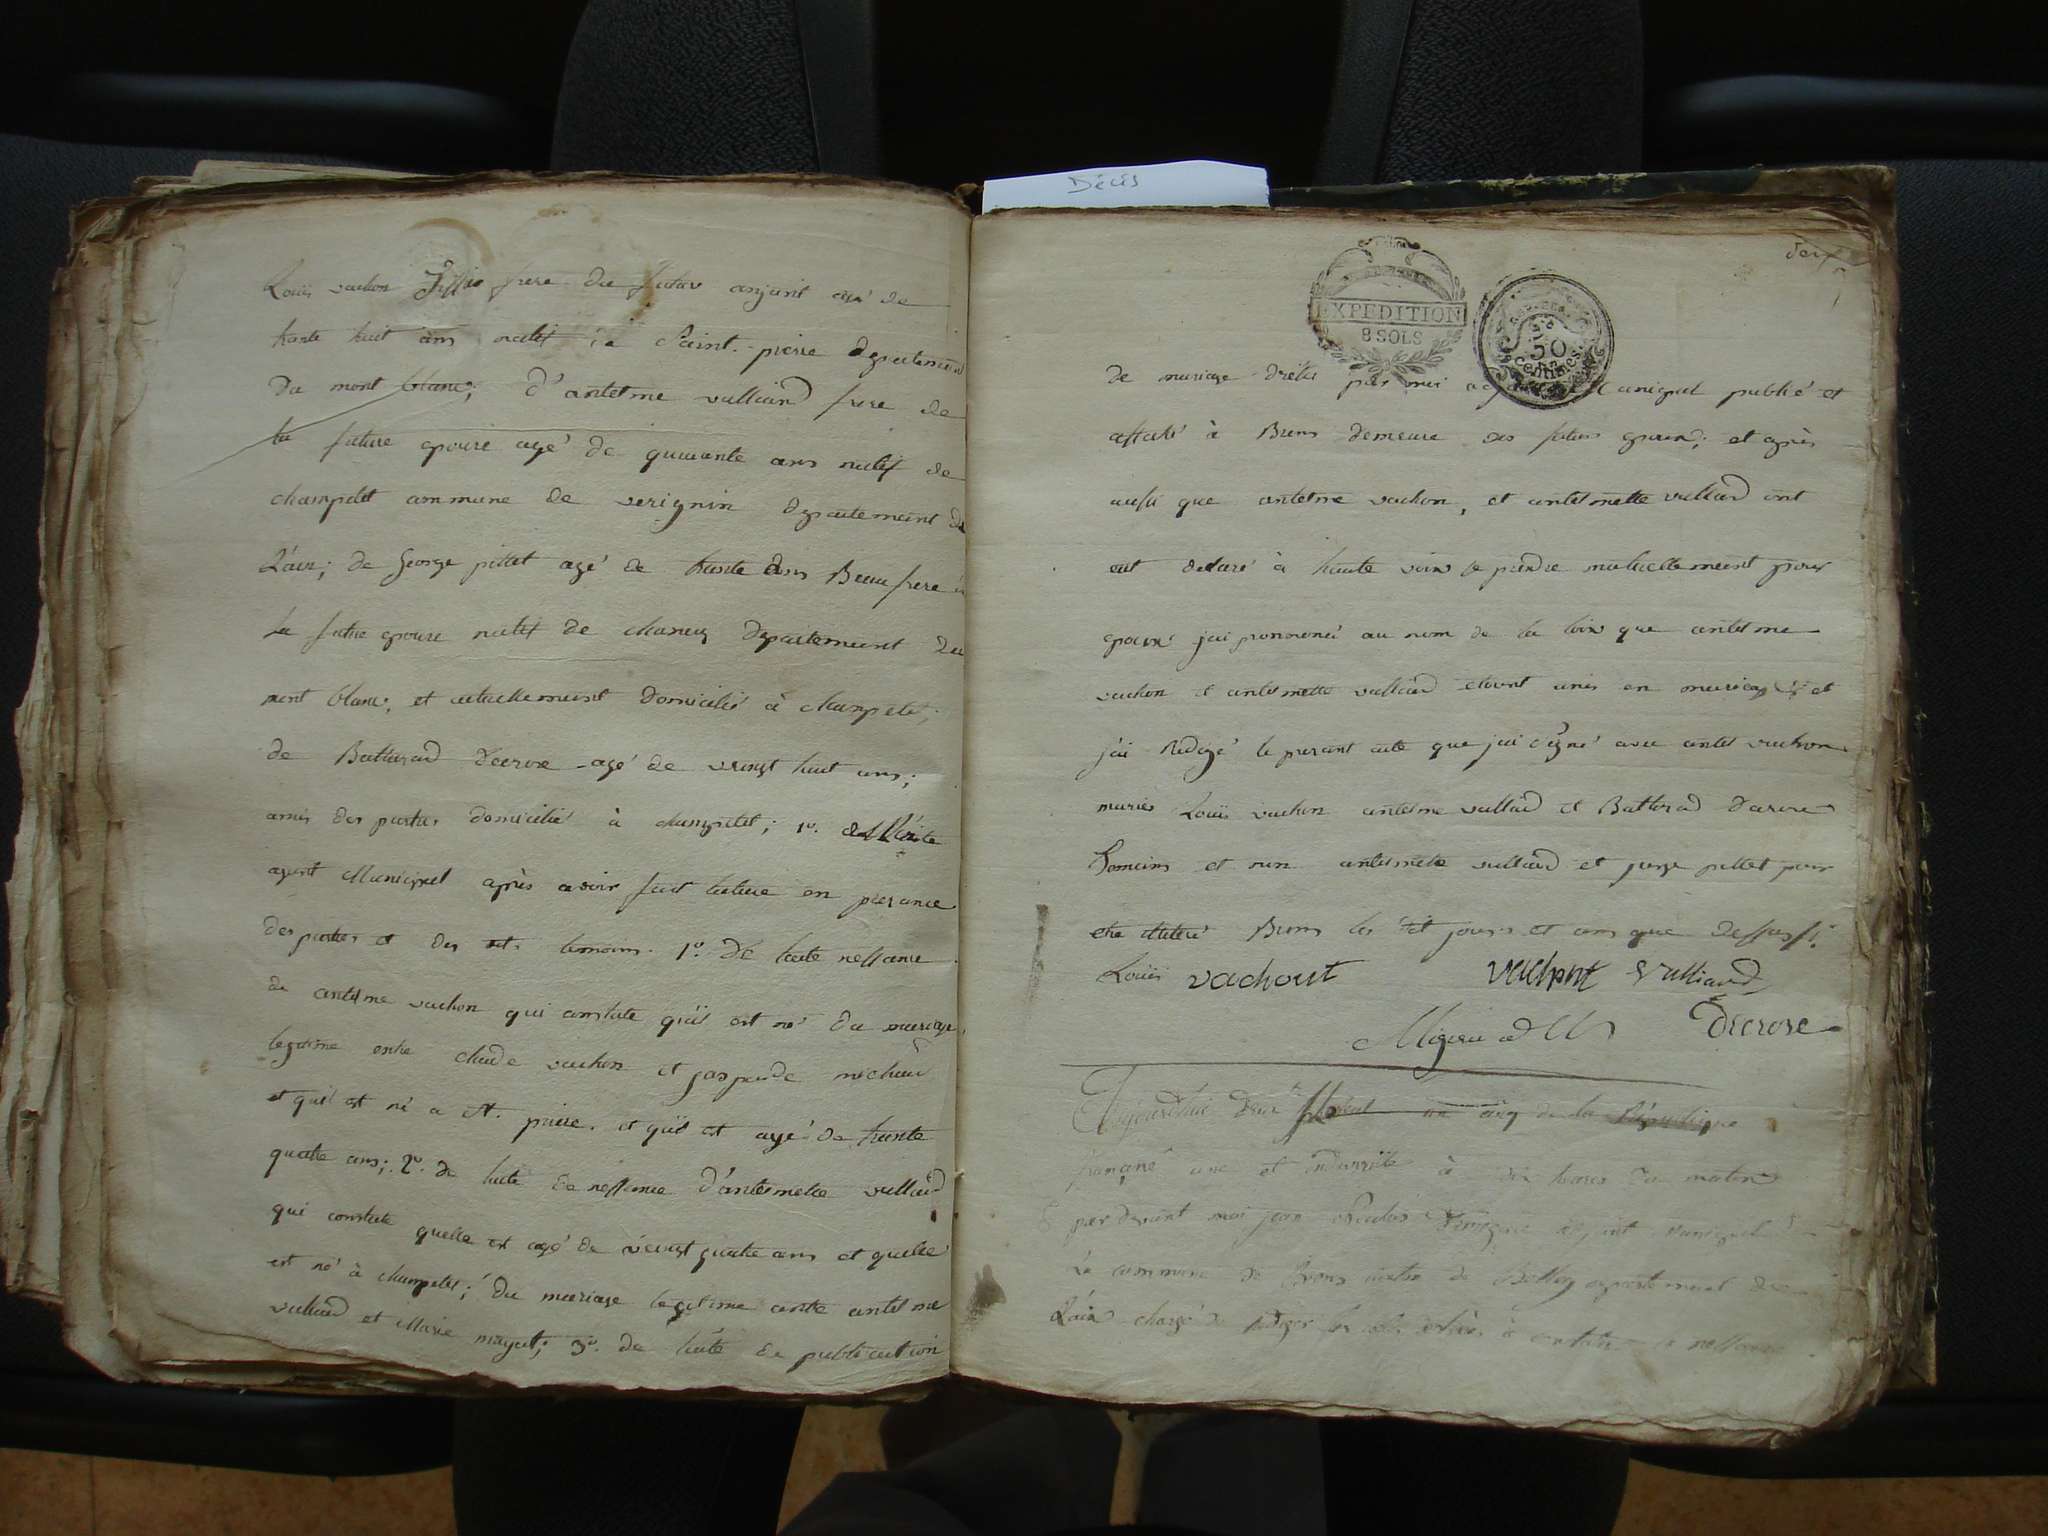 Décis
Louis vachon frere du futur conjoint agé de
trante huit ans natif de Saint-pierre departement
Du mont blanc; d'antelme vulliard frere de
la future epouse agé de quarante ans natif de
champetel commune de verignin departement de
L'ain; de George pittet agé de trante ans Beau frere à
la future epouse natif de chanay departement du
mont blanc, et actuellement domicilié à champetel;
de Balthazard Decrose agé de vingt huit ans;
amis des parties domicilié à champetel;
agent Municipal après avoir fait lecture en presance
des parties et des temoins. 1º. de l'acte nessance
de antelme vachon qui constate qu'il est né du mariage
legitime entre claude vachon et gasparde michaud
et quil est né a St. pierre, et qu'il est agé de trante
quatre ans; 2º. de l'acte de nessance d'antelmette vulliard
qui constate quelle est agé de vingt quatre ans et quelle
est né à champetel; du mariage legitime entre antelme
vulliard et Marie mayet; 3º. de l'acte de publication
deux
EXPEDITION
8 SOLS
50
Centimes
de mariage par moi municipal publié et
affiché à Brens demeure des futurs epoux; et après
aussi que antelme vachon, et antelmette vulliard ont
ont declaré à haute voix se prendre mutuellement pour
epoux j'ai prononcé au nom de la loix que antelme
vachon et antelmette vulliard etoint unis en mariage et
j'ai Redigé le presant acte que j'ai signé avec antel vachon
mariés Louis vachon antelme vulliard et Balthazard Decrose
temoins et non antelmette vulliard et jorge pittet pour
etre Brens les dit jours et ans que dessus
Louis vachout vachont vulliard
Decrose
Aujourdhui deux floreal an cinq de la Republique
française une et indivisible à dix heures du matin
pardevant moi jean municipal
La commune de Brens canton de Belley departement de
L'ain chargé de rediger les actes à constater la nessance